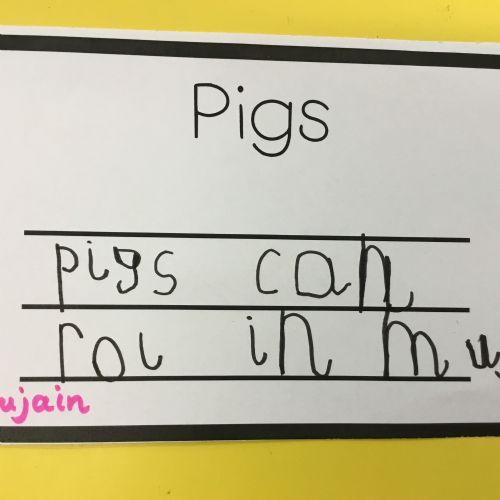 Pigs
pigs can
rol in mu
ujain